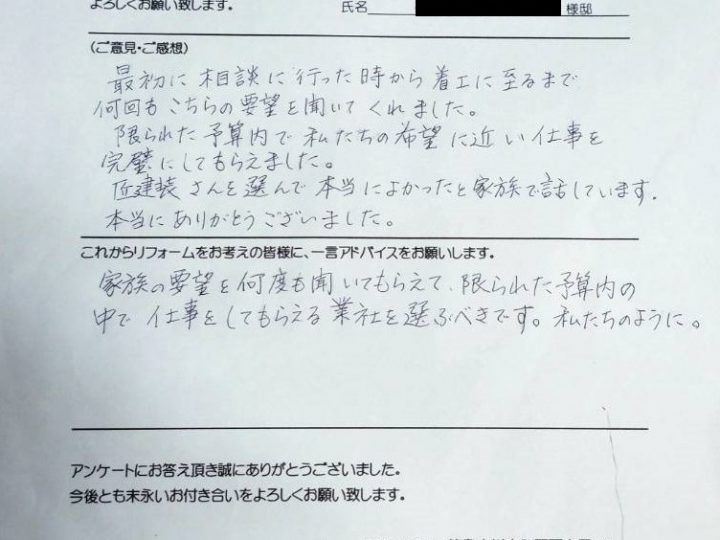 よろしくお願い致します。
氏名 様邸
(ご意見・ご感想)
最初に相談に行った時から着工に至るまで
何回もこちらの要望を聞いてくれました。
限られた予算内で私たちの希望に近い仕事を
完璧にしてもらえました。
匠建装さんを選んで本当によかったと家族で話しています.
本当にありがとうございました。
これからリフォームをお考えの皆様に、一言アドバイスをお願いします。
家族の要望を何度も聞いてもらえて、限られた予算内の
中で仕事をしてもらえる業社を選ぶべきです。私たちのように。
アンケートにお答え頂き誠にありがとうございました。
今後とも末永いお付き合いをよろしくお願い致します。